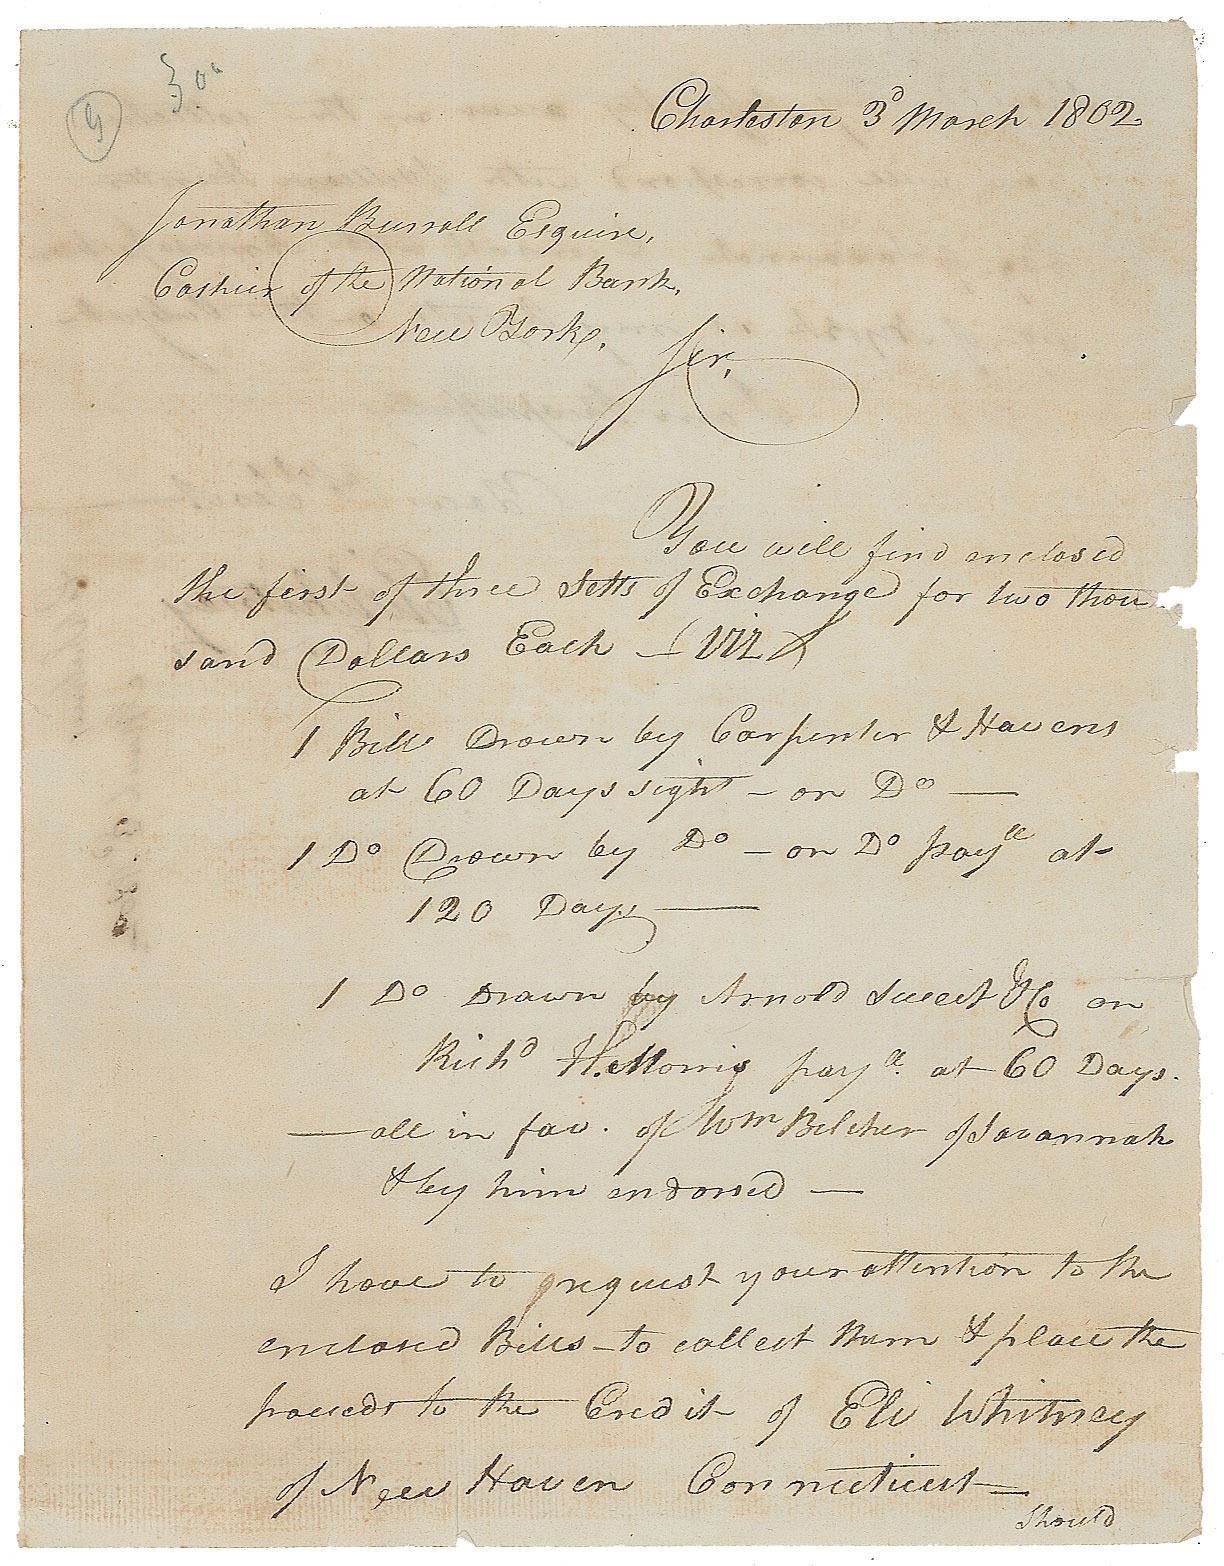 9
Charleston 3d March 1802
Jonathan Burrall Esquire,
Cashier of the National Bank,
New York,
Sir,
You will find enclosed
the first of three Setts of Exchange for two thou
sand Dollars Each — (viz)
1 Bill Drawn by Carpenter & Havens
at 60 Days sight — on Do —
1 Do Drawn by Do — on Do payle at
120 Days —
1 Do Drawn by Arnold Sweet & Co on
Richd payle at 60 Days.
— all in fav. of Wm Belcher of Savannah
& by him endorsed —
I have to request your attention to the
enclosed Bills — to collect them & place the
proceeds to the Credit of Eli Whitney
of New Haven Connecticut —
Should